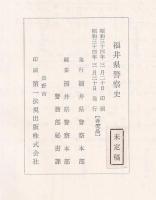 福井県警察史
未定稿
昭和三十四年三月二十日 印刷
昭和三十四年三月三十日 発行
【非売品】
発行 福井県警察本部
編集 福井県警察本部
警務部秘書課
長野市
印刷 第一法規出版株式会社